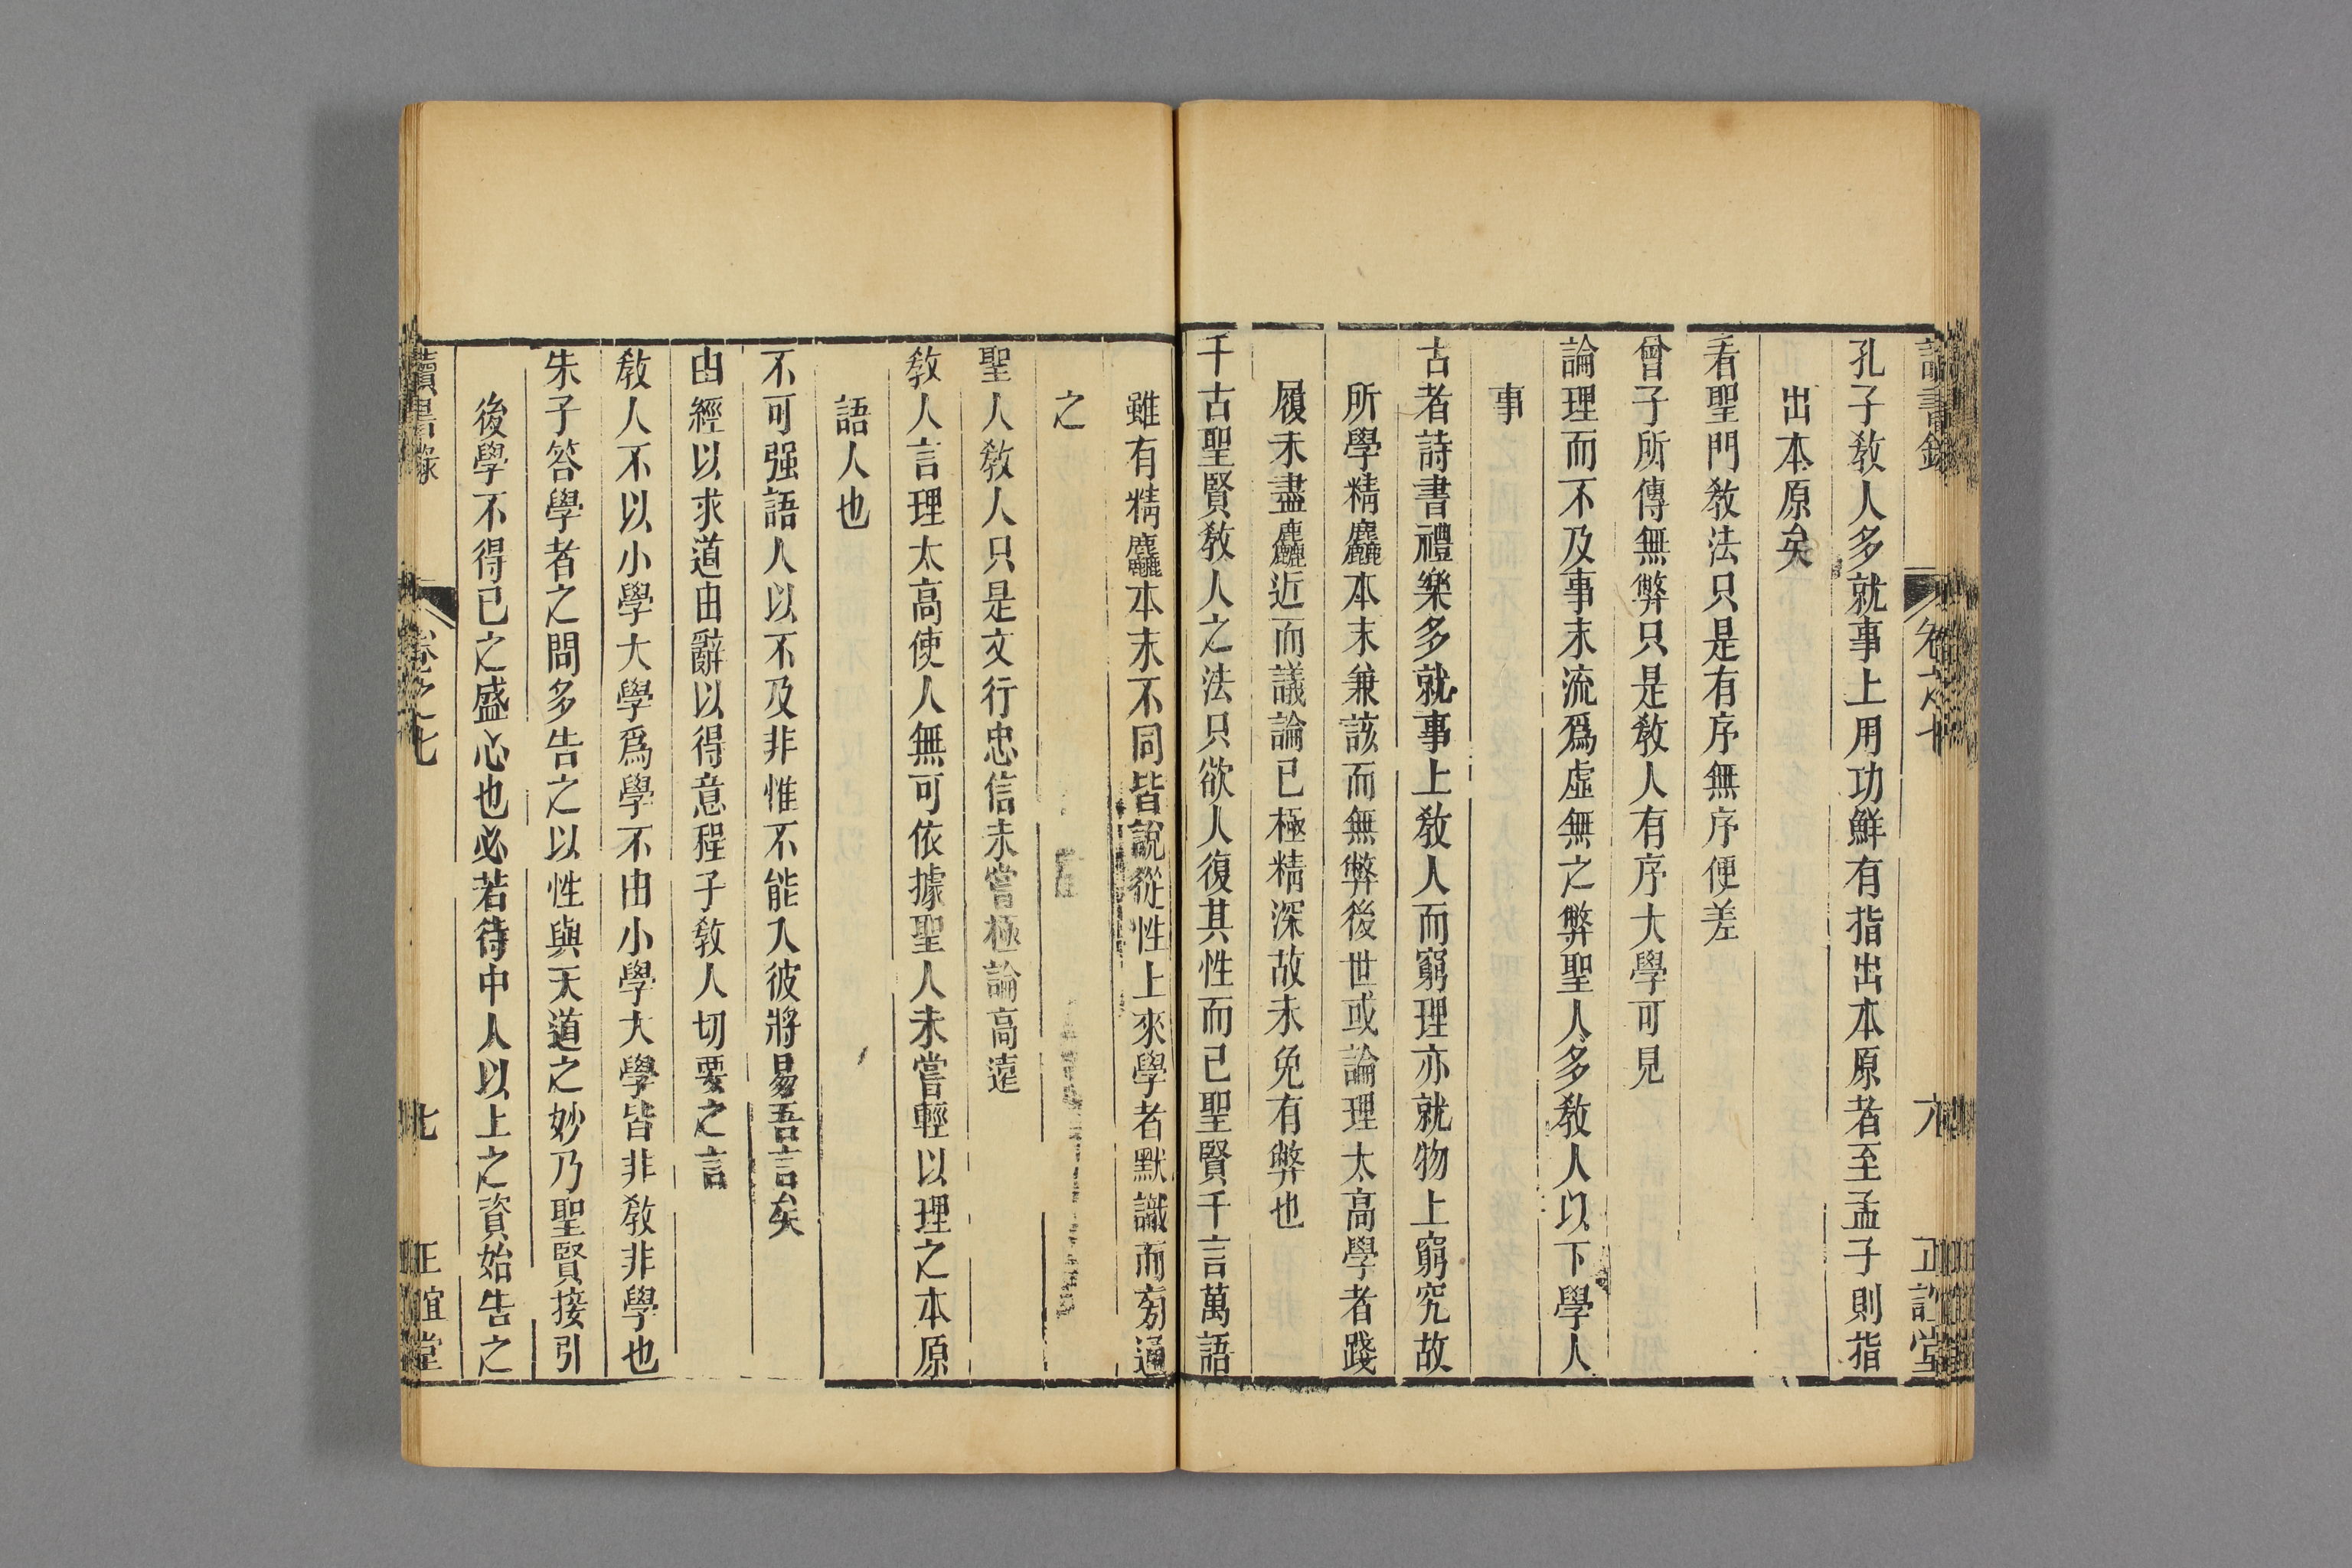 讀書錄 卷之七 六 正誼堂
孔子敎人多就事上用功鮮有指出本原者至孟子則指
出本原矣
看聖門敎法只是有序無序便差
曾子所傳無弊只是敎人有序大學可見
論理而不及事末流爲虛無之弊聖人多敎人以下學人
事
古者詩書禮樂多就事上敎人而窮理亦就物上窮究故
所學精麤本末兼該而無弊後世或論理太高學者踐
履未盡麤近而議論已極精深故未免有弊也
千古聖賢敎人之法只欲人復其性而已聖賢千言萬語
雖有精麤本末不同皆說從性上來學者默識而旁通
之
聖人敎人只是文行忠信未嘗極論高遠
敎人言理太高使人無可依據聖人未嘗輕以理之本原
語人也
不可强語人以不及非惟不能入彼將易吾言矣
由經以求道由辭以得意程子敎人切要之言
敎人不以小學大學爲學不由小學大學皆非敎非學也
朱子答學者之問多告之以性與天道之妙乃聖賢接引
後學不得已之盛心也必若待中人以上之資始告之
讀書錄 卷之七 七 正誼堂